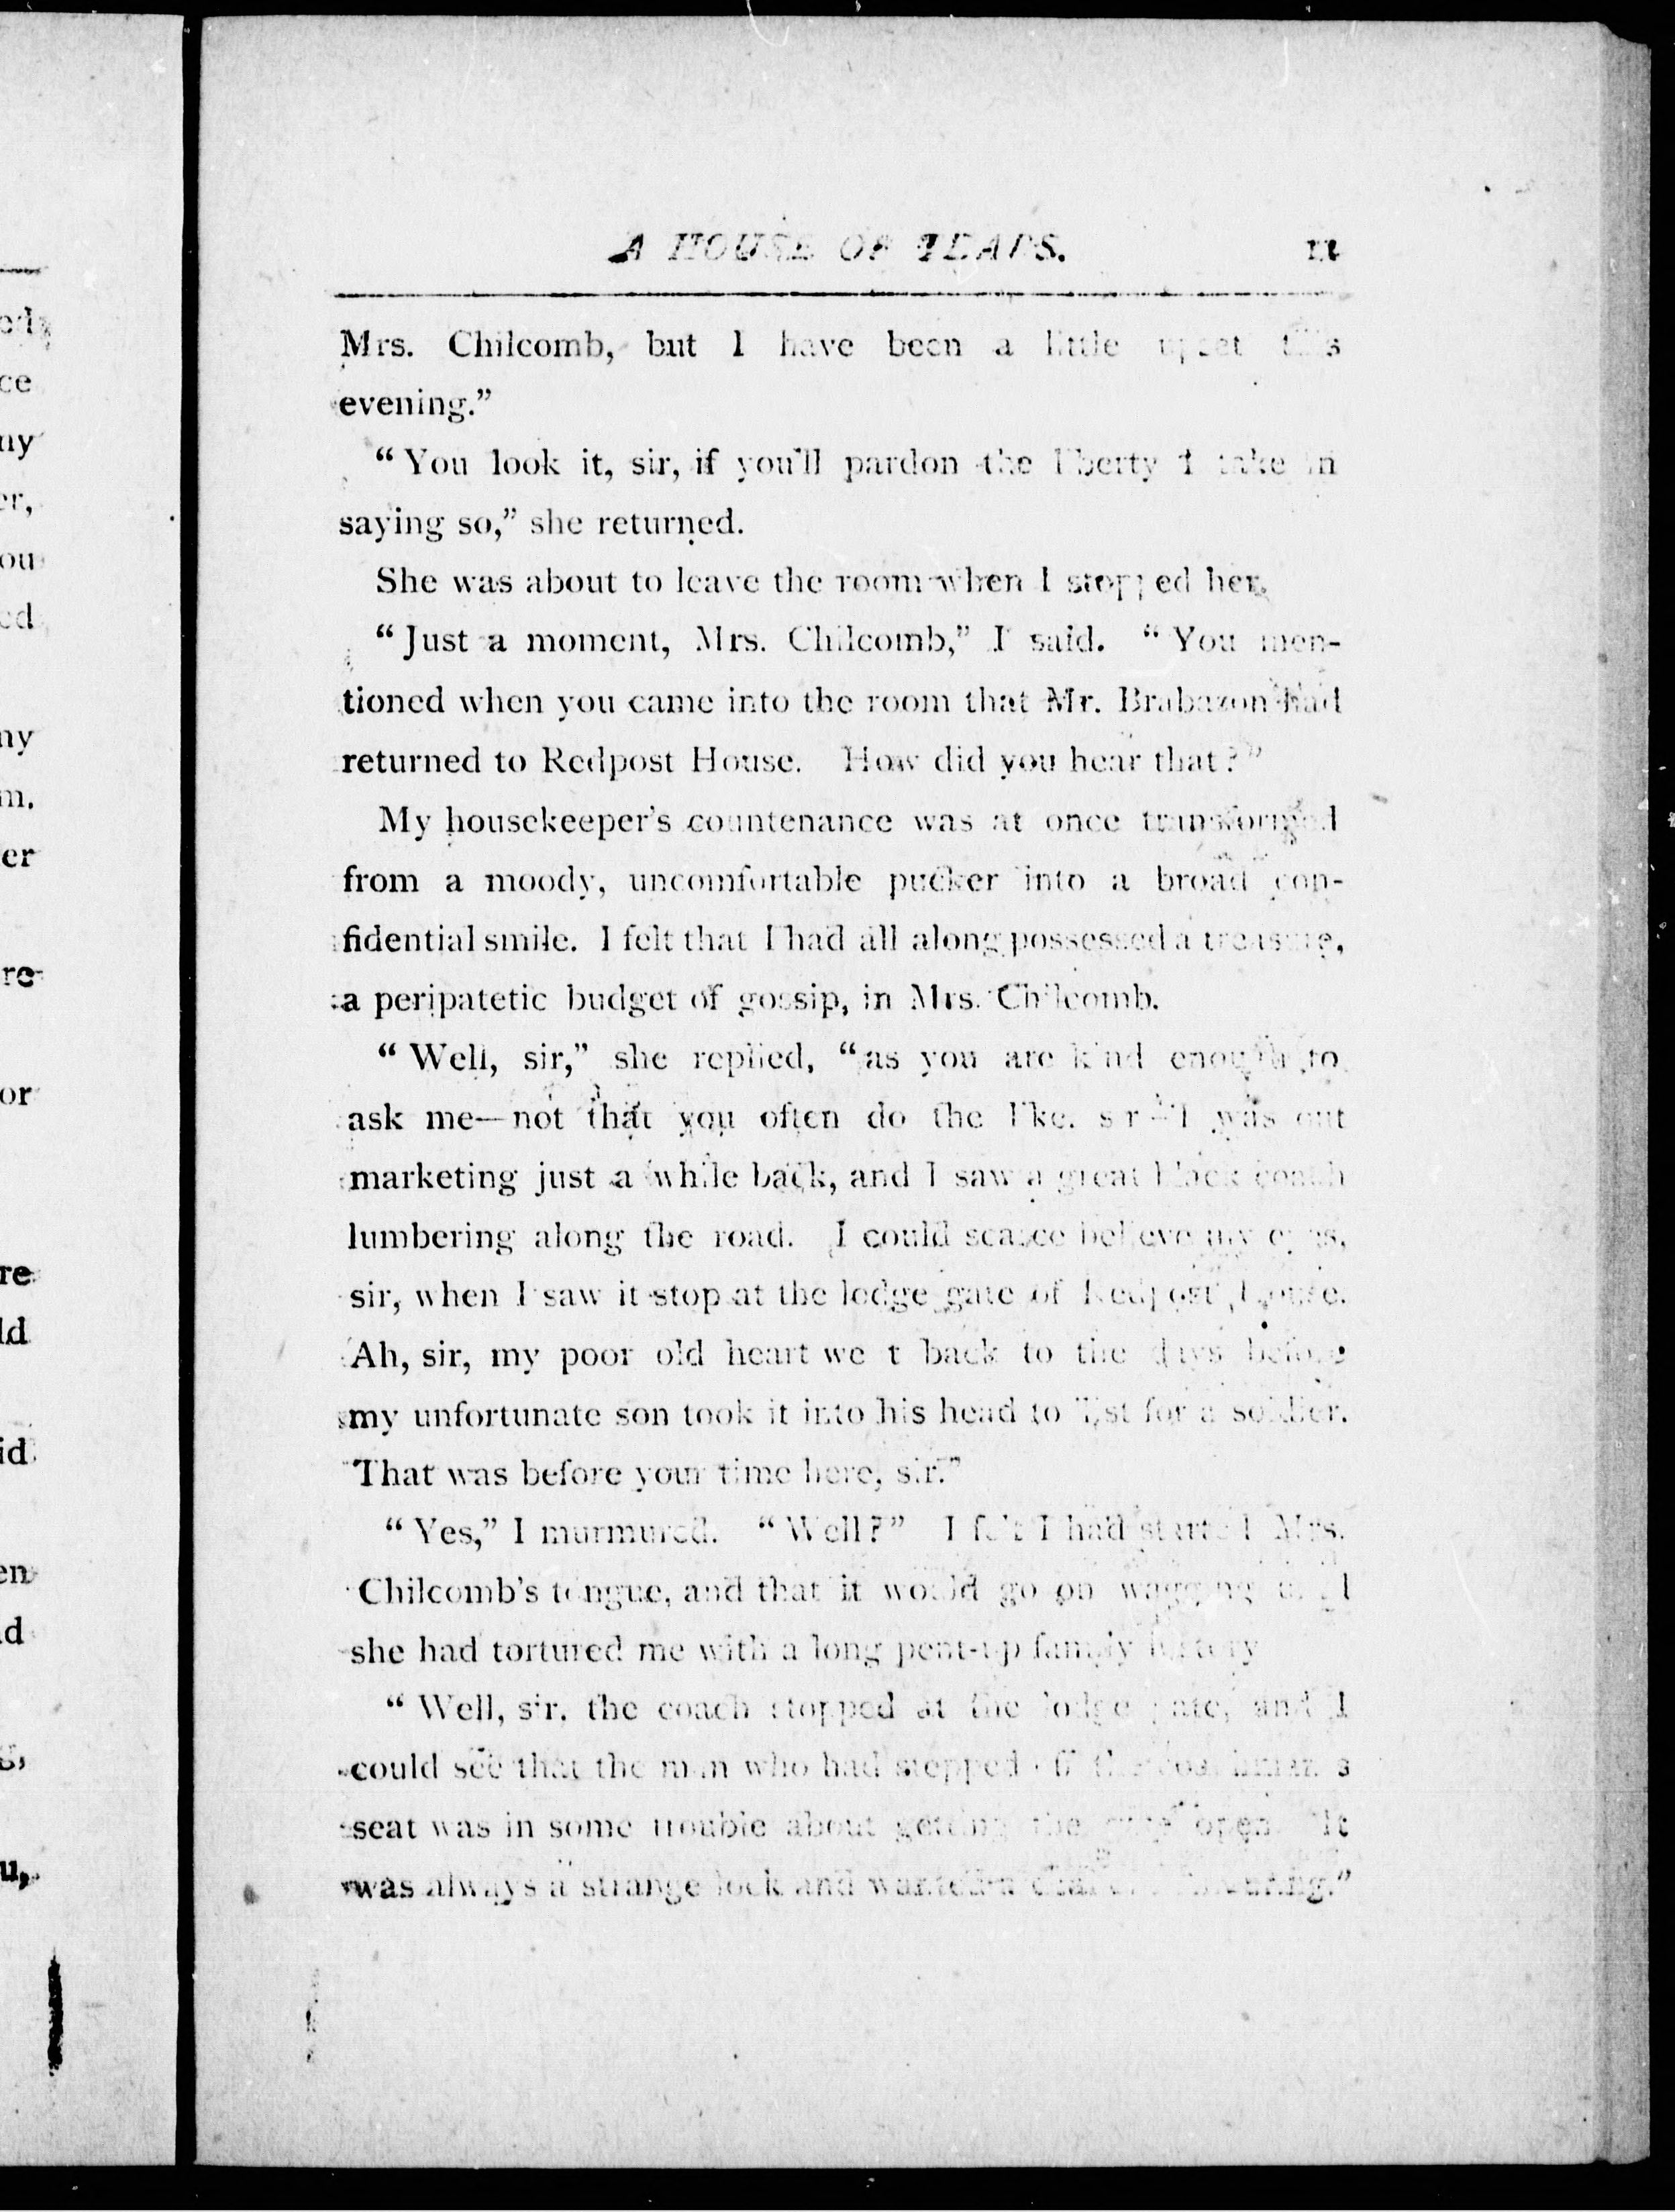 A HOUSE OF TEARS. 11
Mrs. Chilcomb, but I have been a little upset this
evening.”
“You look it, sir, if you'll pardon the liberty I take in
saying so,” she returned.
She was about to leave the room when I stopped her.
“Just a moment, Mrs. Chilcomb,” I said. “You men-
tioned when you came into the room that Mr. Brabazon had
returned to Redpost House. How did you hear that?”
My housekeeper's countenance was at once transformed
from a moody, uncomfortable pucker into a broad con-
fidential smile. I felt that I had all along possessed a treasure,
a peripatetic budget of gossip, in Mrs. Chilcomb.
“Well, sir,” she replied, “as you are kind enough to
ask me—not that you often do the like, sir—I was out
marketing just a while back, and I saw a great black coach
lumbering along the road. I could scarce believe my eyes,
sir, when I saw it stop at the lodge gate of Redpost House.
Ah, sir, my poor old heart went back to the days before
my unfortunate son took it into his head to 'list for a soldier.
That was before your time here, sir.”
“Yes,” I murmured. “Well?” I felt I had started Mrs.
Chilcomb's tongue, and that it would go on wagging until
she had tortured me with a long pent-up family history
“Well, sir, the coach stopped at the lodge gate, and I
could see that the man who had stepped off the coachman's
seat was in some trouble about getting the gate open. It
was always a strange lock and wanted a deal